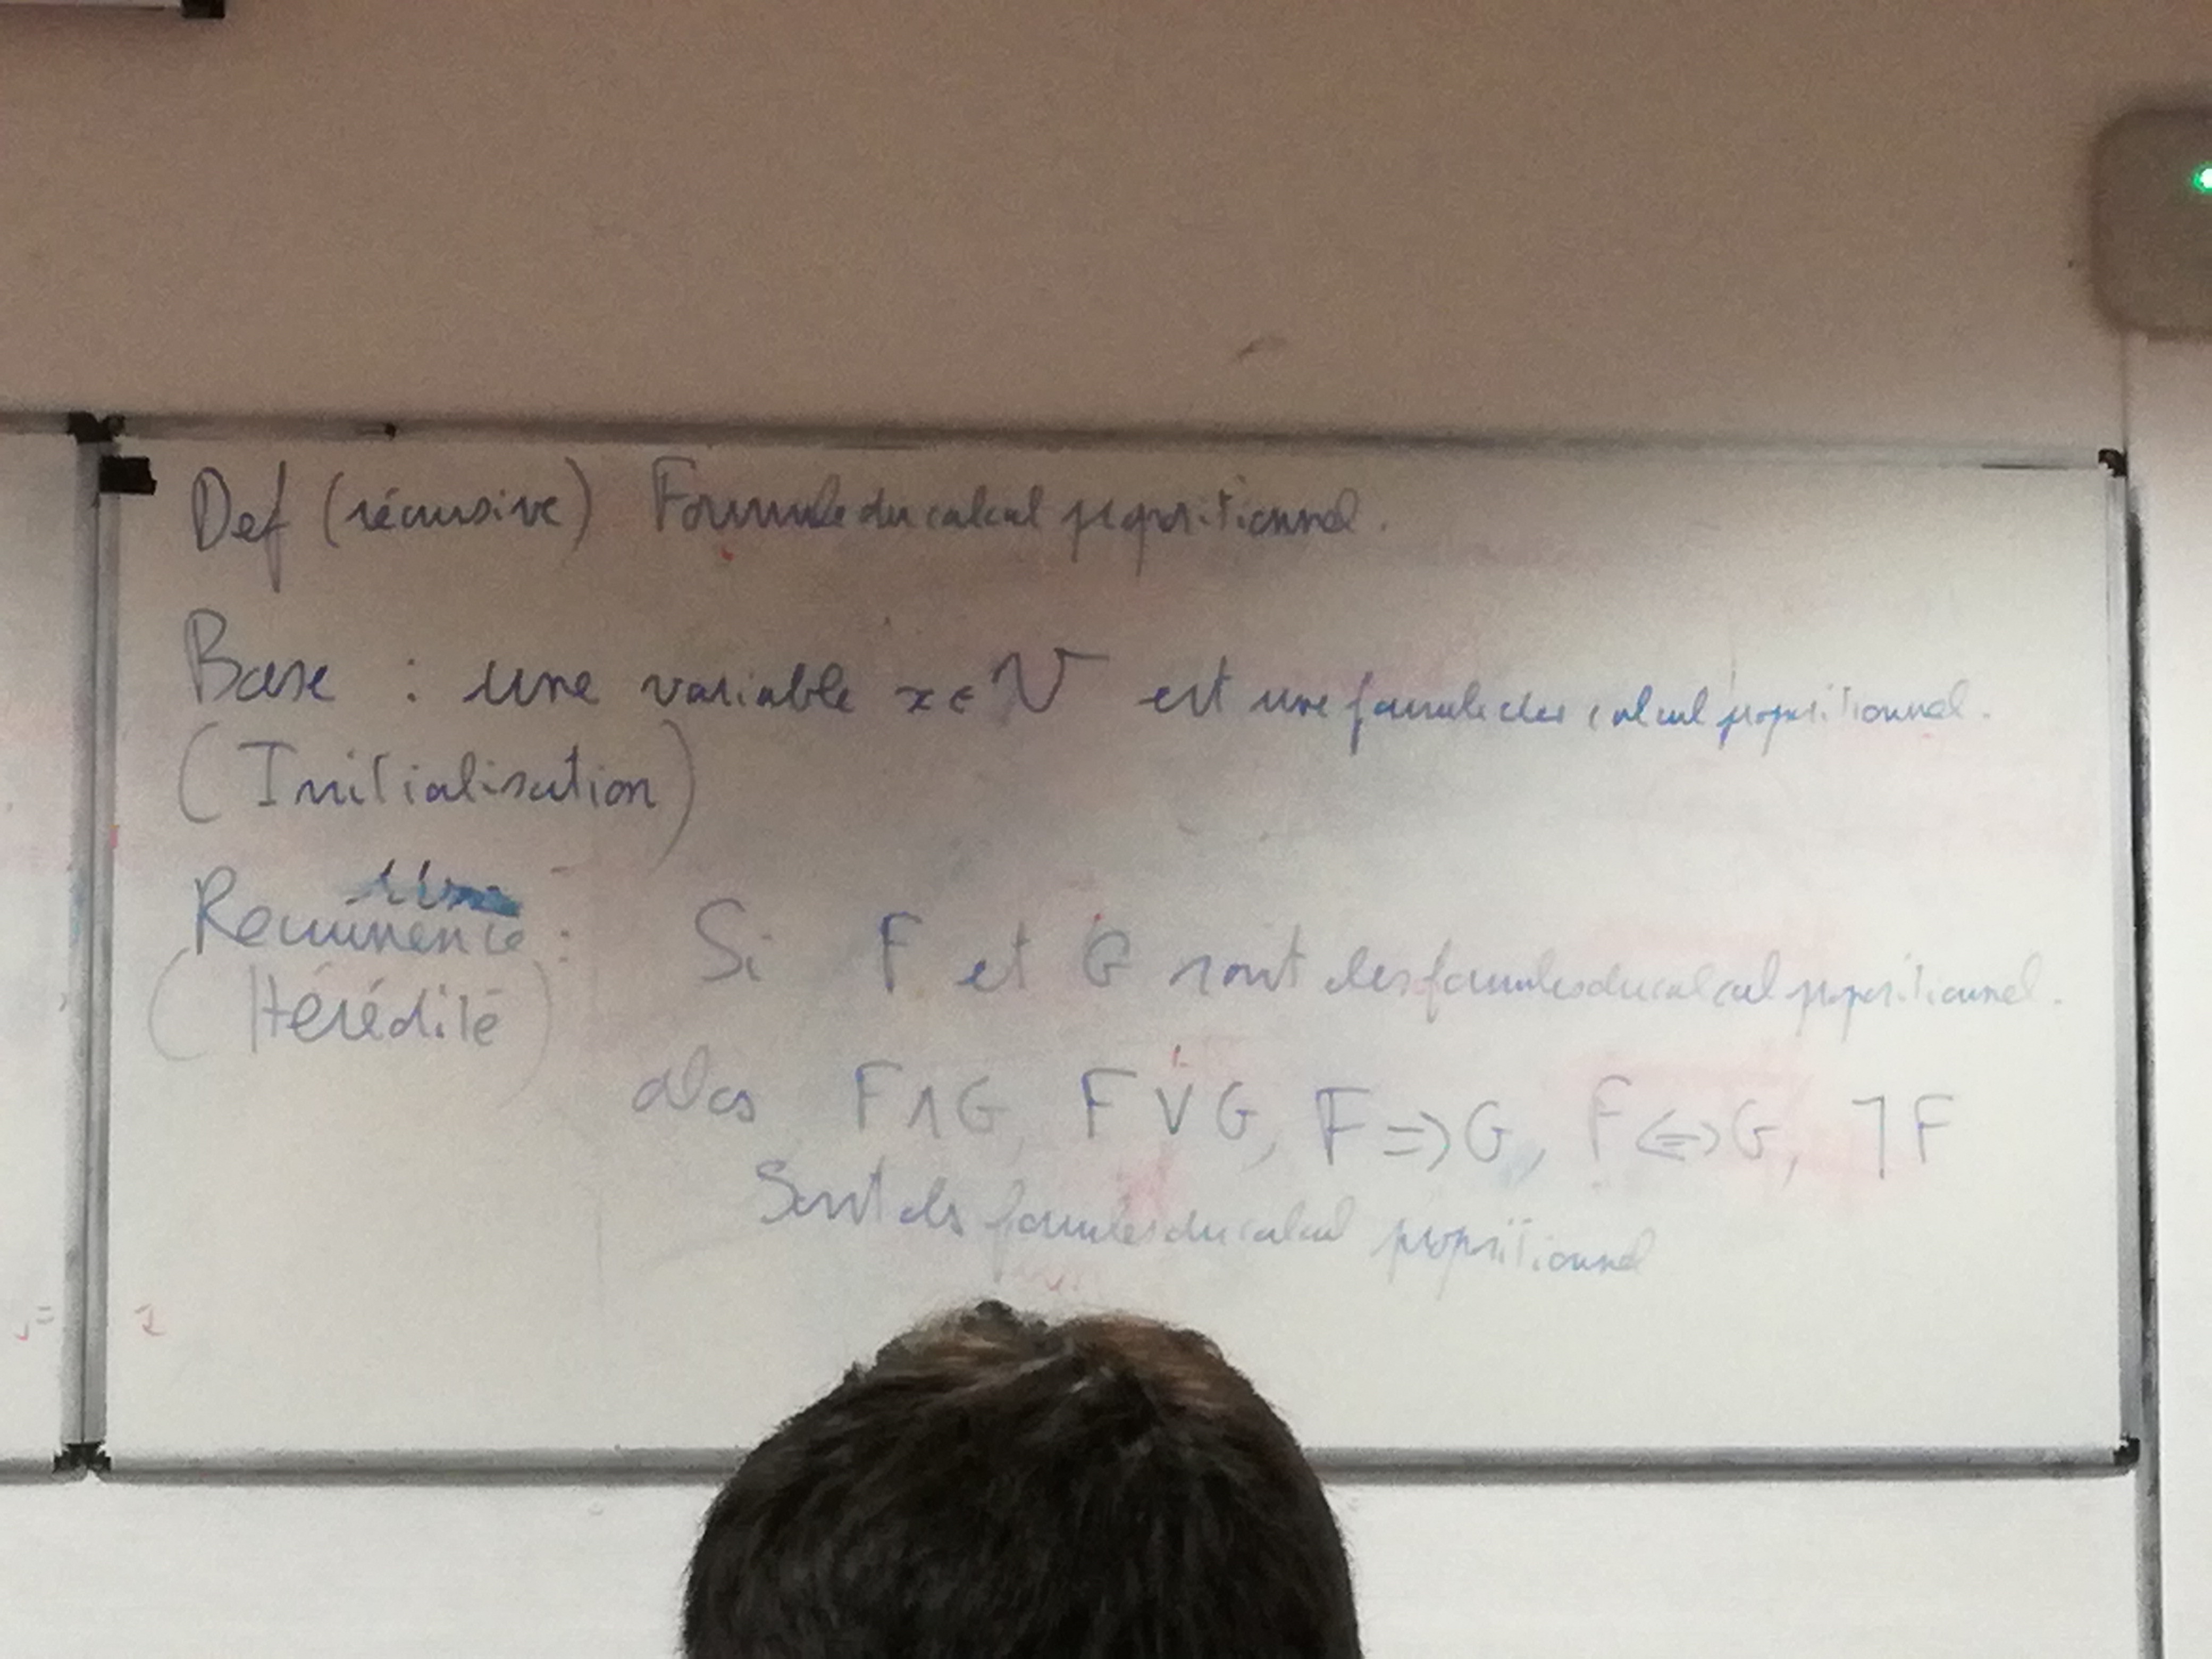 Def (récursive) Formule du calcul propositionnel.
Base : une variable x ∈ V est une formule du calcul propositionnel.
(Initialisation)
Recurrence : Si F et G sont des formules du calcul propositionnel.
(Hérédité)
alors F ∧ G, F ∨ G, F ⇒ G, F ⇔ G, ¬F
Sont des formules du calcul propositionnel